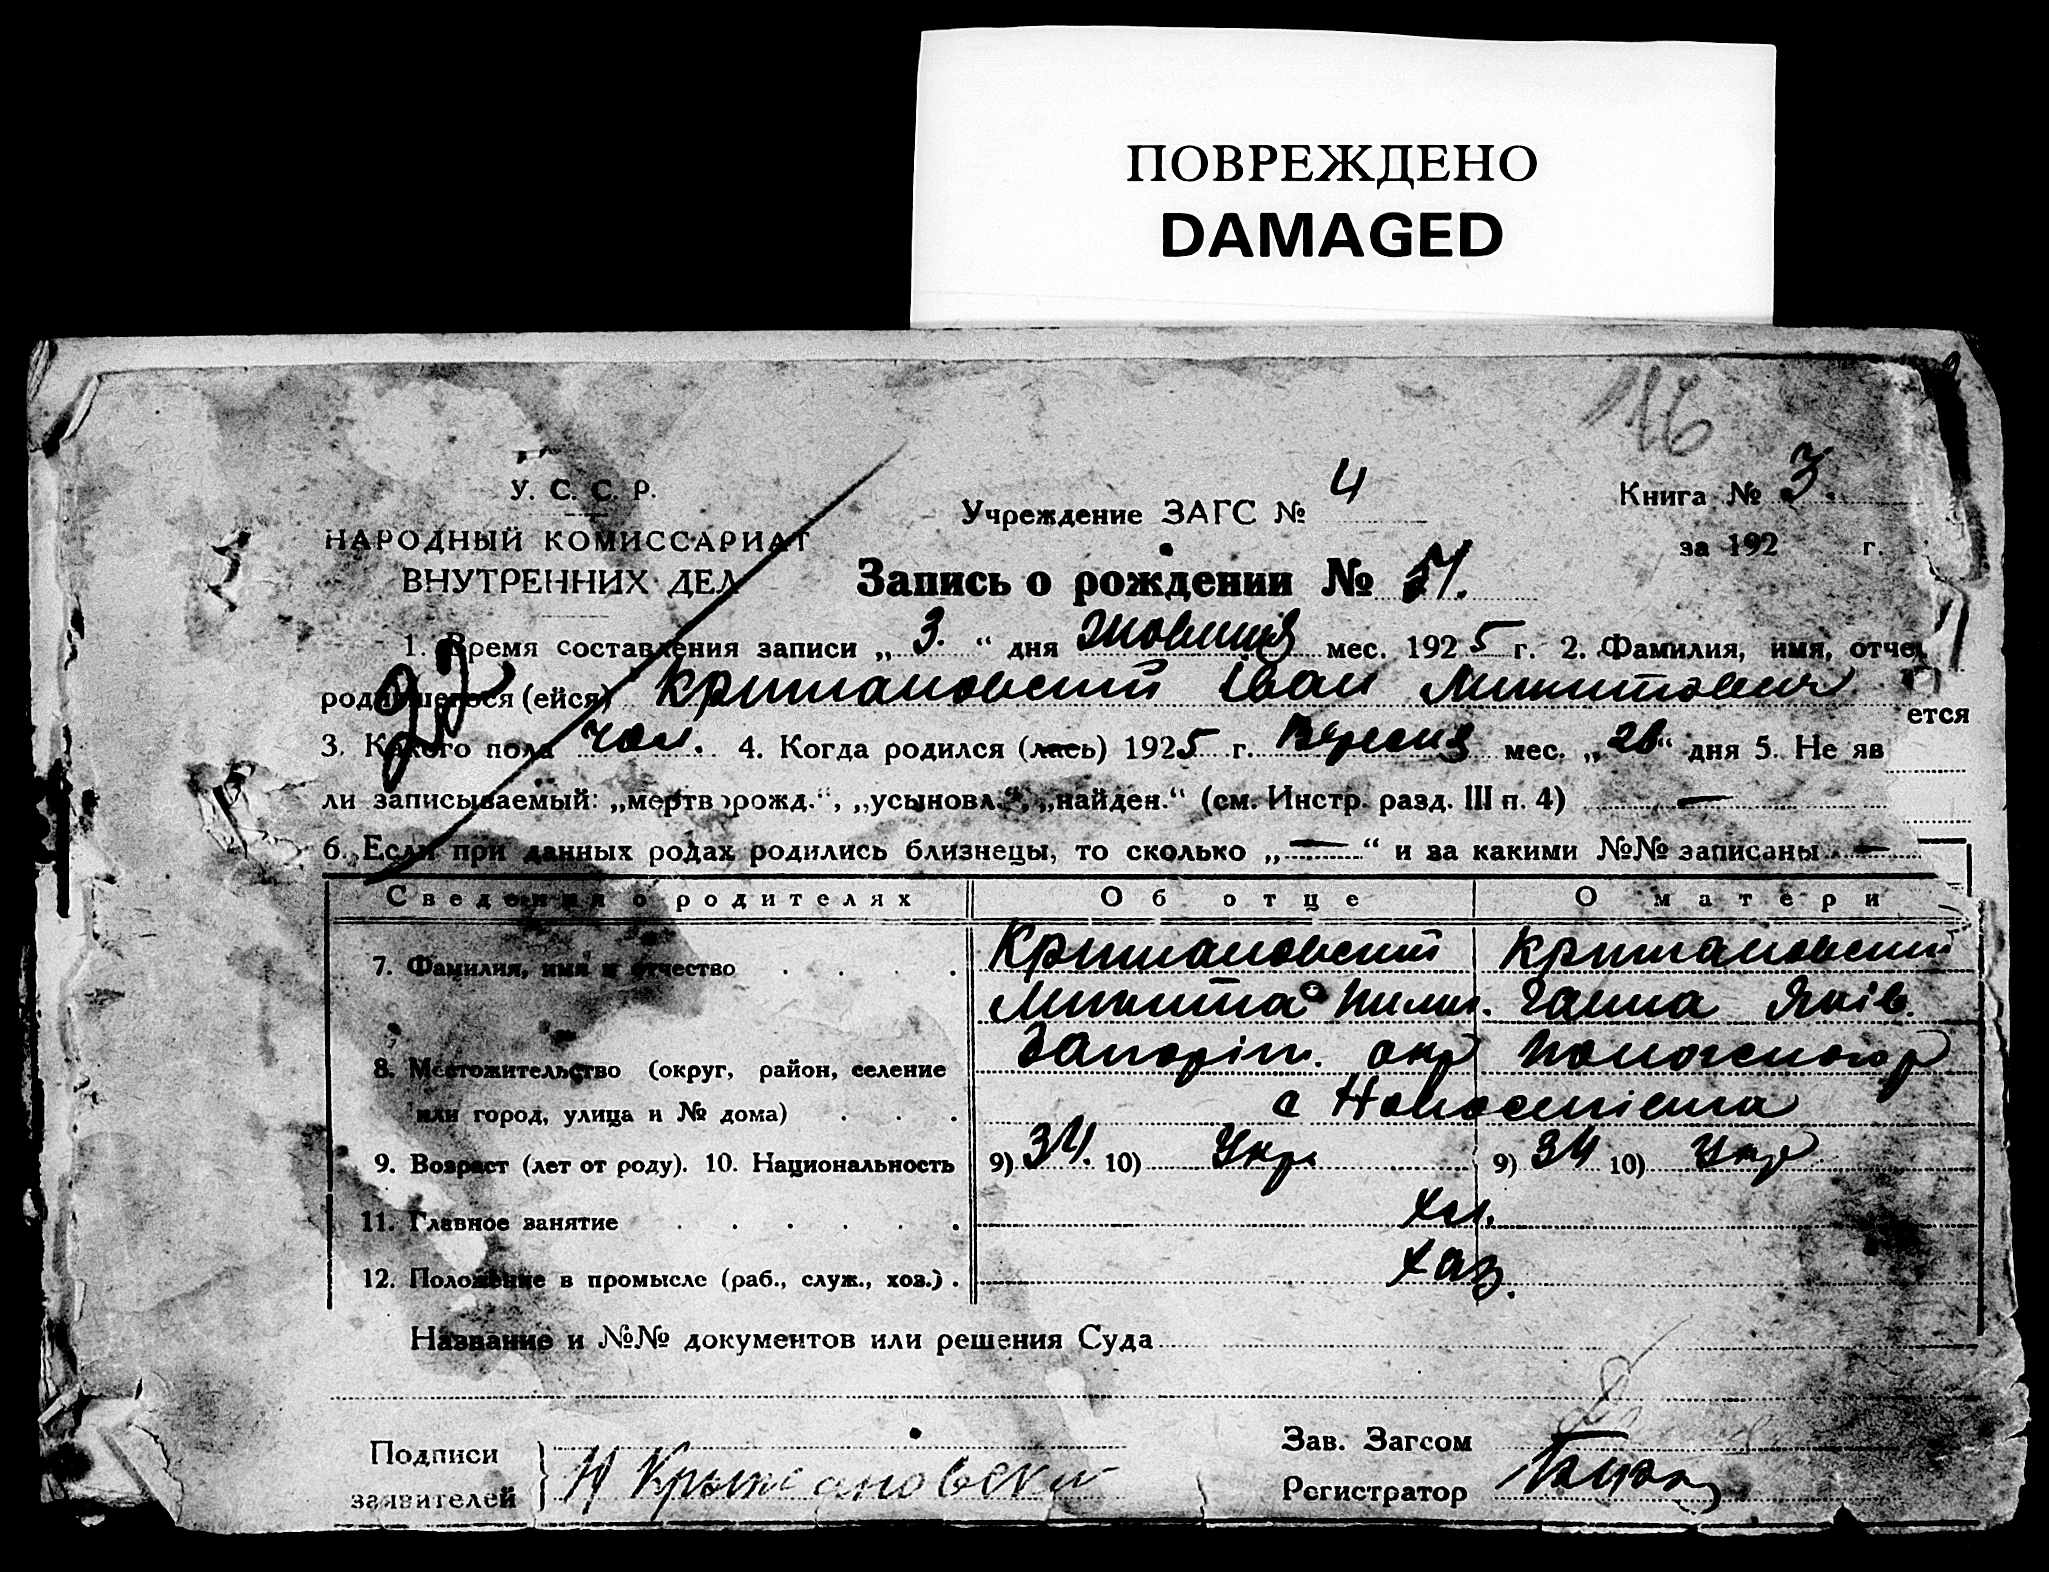 ПОВРЕЖДЕНО
DAMAGED
116
У. С. С. Р.
НАРОДНЫЙ КОМИССАРИАТ
ВНУТРЕННИХ ДЕЛ
Учреждение ЗАГС № 4
Книга № 3.
за 192 г.
Запись о рождении №
1. Время составления записи „ 3. “ дня Жовтня мес. 1925 г. 2. Фамилия, имя, отче
родившегося (ейся) Крижановский Іван Микитович
ется
3. Какого пола чол. 4. Когда родился (лась) 1925 г. Вересня мес. „ 26 “ дня 5. Не яв
ли записываемый: „мертворожд.“, „усыновл.“, „найден.“ (см. Инстр. разд. III п. 4) —
6. Если при данных родах родились близнецы, то сколько „ — “ и за какими №№ записаны —
Сведения о родителях Об отце О матери
7. Фамилия, имя и отчество Крижановский Крижановский
Микита Пилип. Ганна Яків.
8. Местожительство (округ, район, селение Запоріж. окр
или город, улица и № дома) с
9. Возраст (лет от роду). 10. Национальность 9) 34. 10) Укр. 9) 34 10) Укр
11. Главное занятие хл.
12. Положение в промысле (раб., служ., хоз.) хаз.
Название и №№ документов или решения Суда
Подписи
заявителей Н Крыжановски
Зав. Загсом
Регистратор